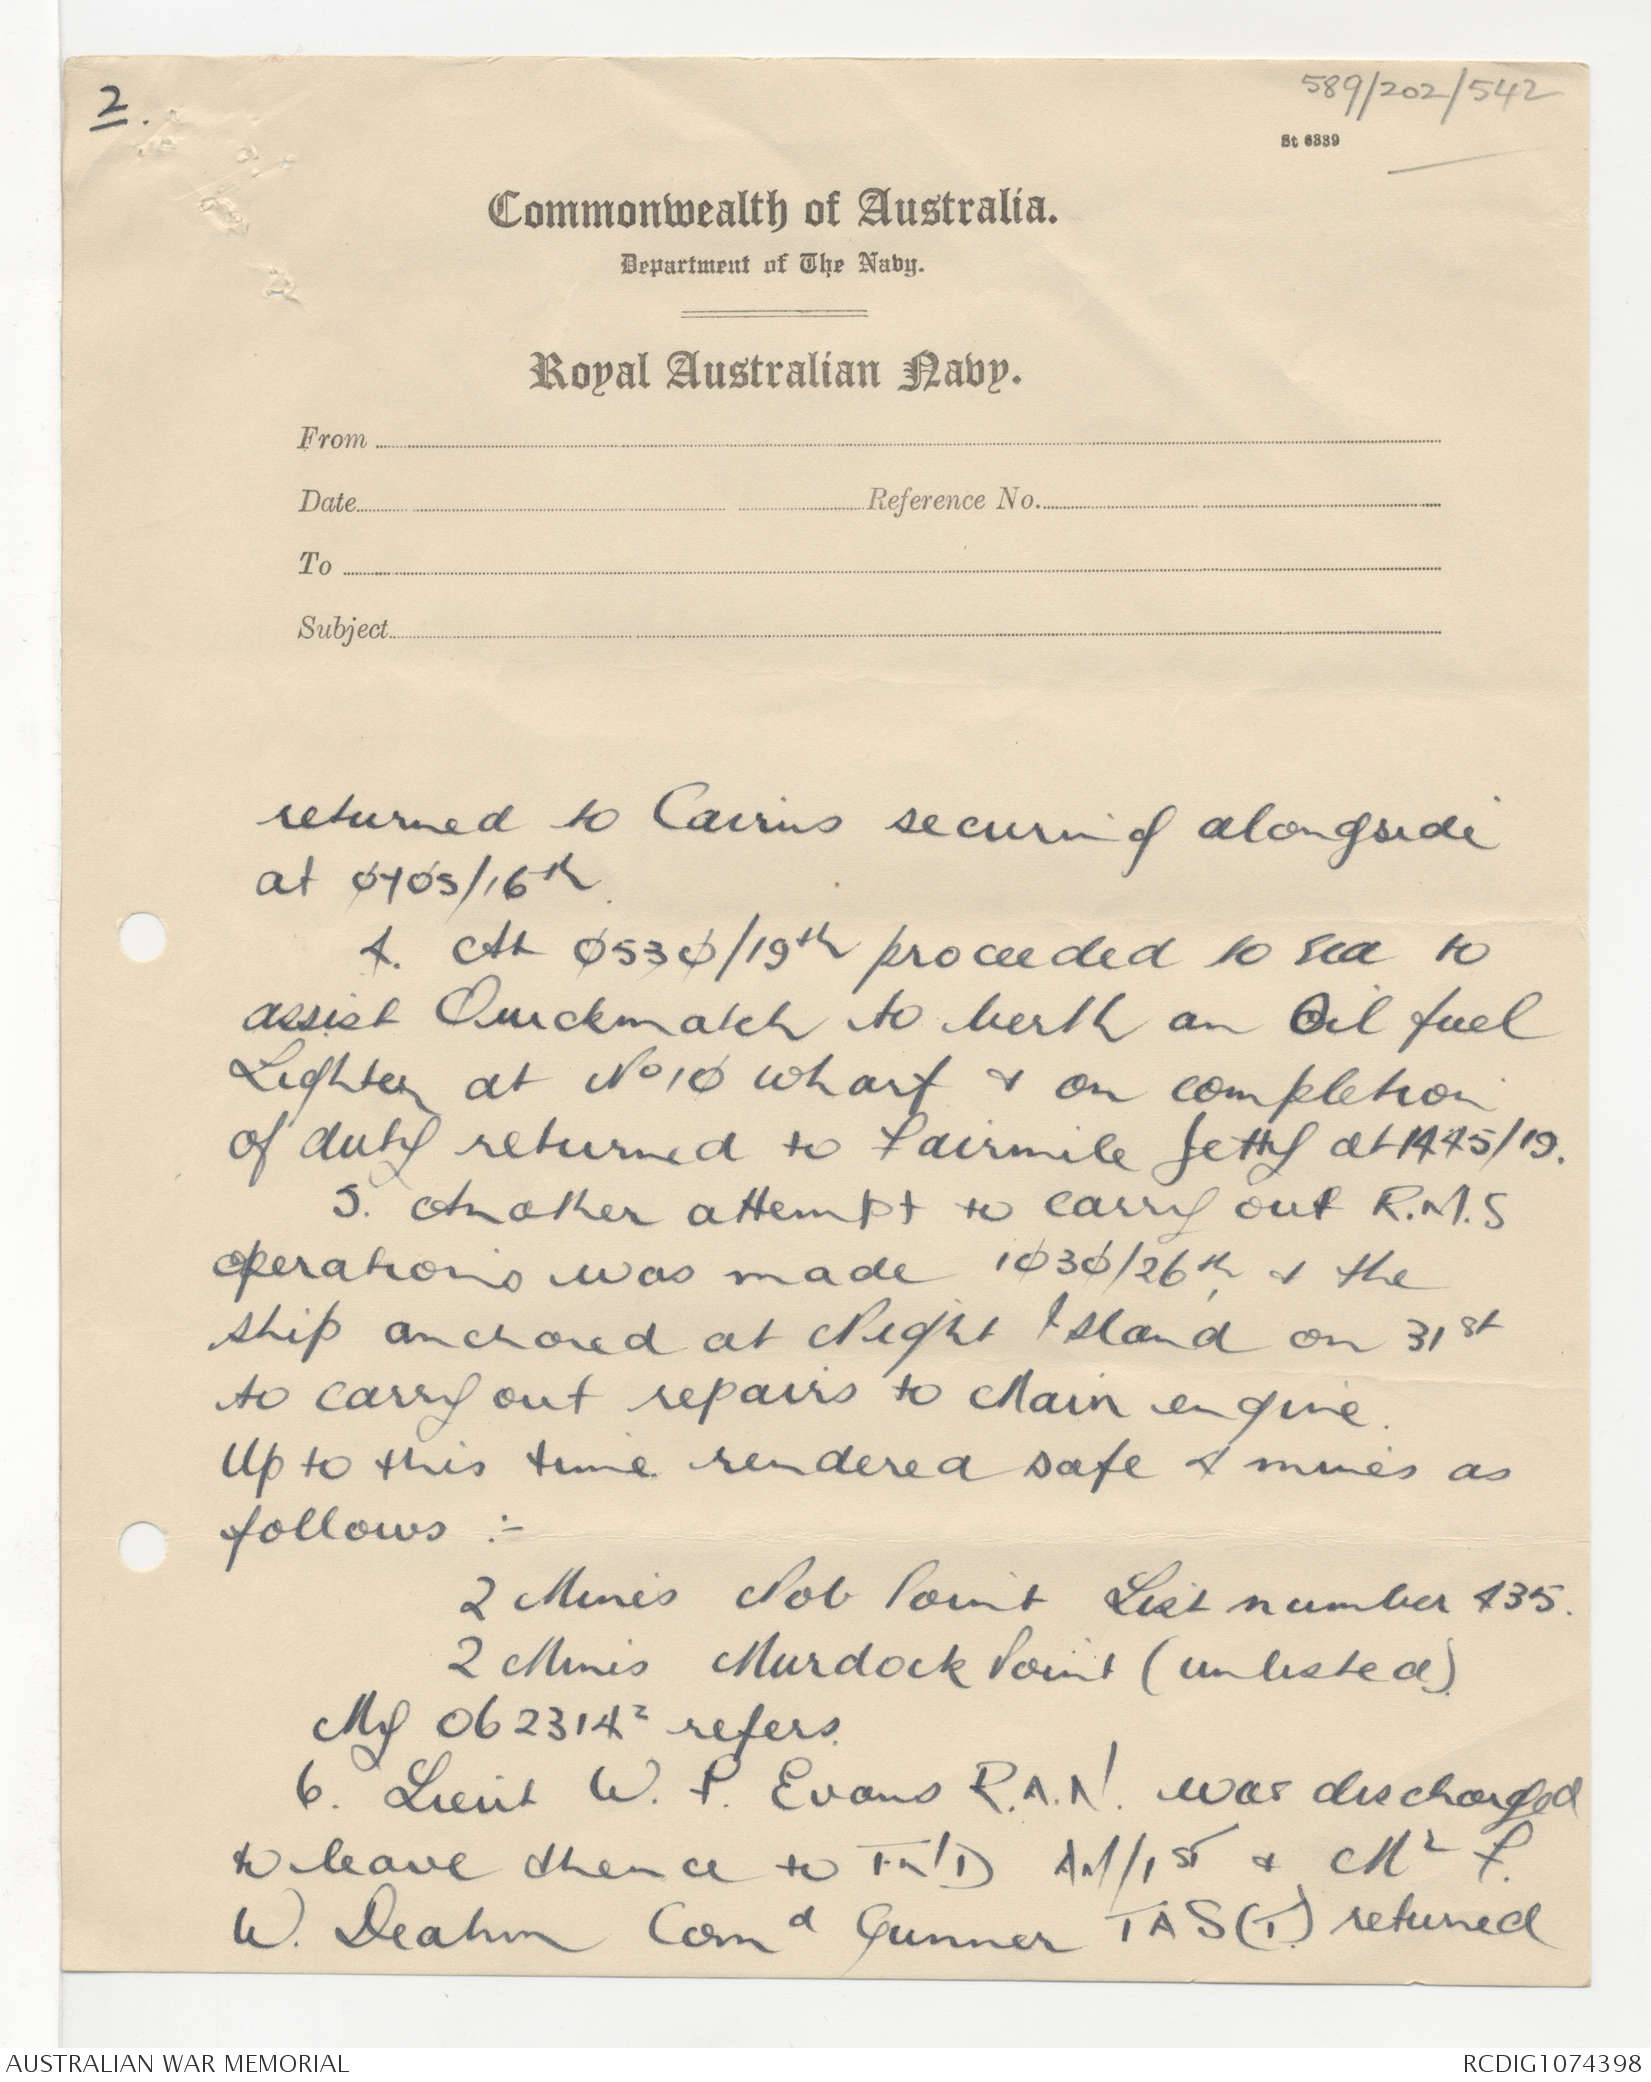 2.
589/202/542
St 6389
Commonwealth of Australia.
Department of The Navy.
Royal Australian Navy.
From
Date Reference No.
To
Subject
returned to Cairns securing alongside
at 0705/16th.
4. At 0530/19th proceeded to sea to
assist Quickmatch to berth an Oil fuel
Lighter at No 10 wharf & on completion
of duty returned to Fairmile Jetty at 1445/19.
5. Another attempt to carry out R.M.S
operations was made 1030/26th, & the
ship anchored at Night Island on 31st
to carry out repairs to Main engine.
Up to this time rendered safe 4 mines as
follows :-
2 Mines Nob Point List number 435.
2 Mines Murdock Point (unlisted)
My 062314z refers.
6. Lieut W. F. Evans R.A.N. was discharged
to leave thence to 1st & Mr F.
W. Deahm Comd Gunner TAS(T.) returned
AUSTRALIAN WAR MEMORIAL
RCDIG1074398